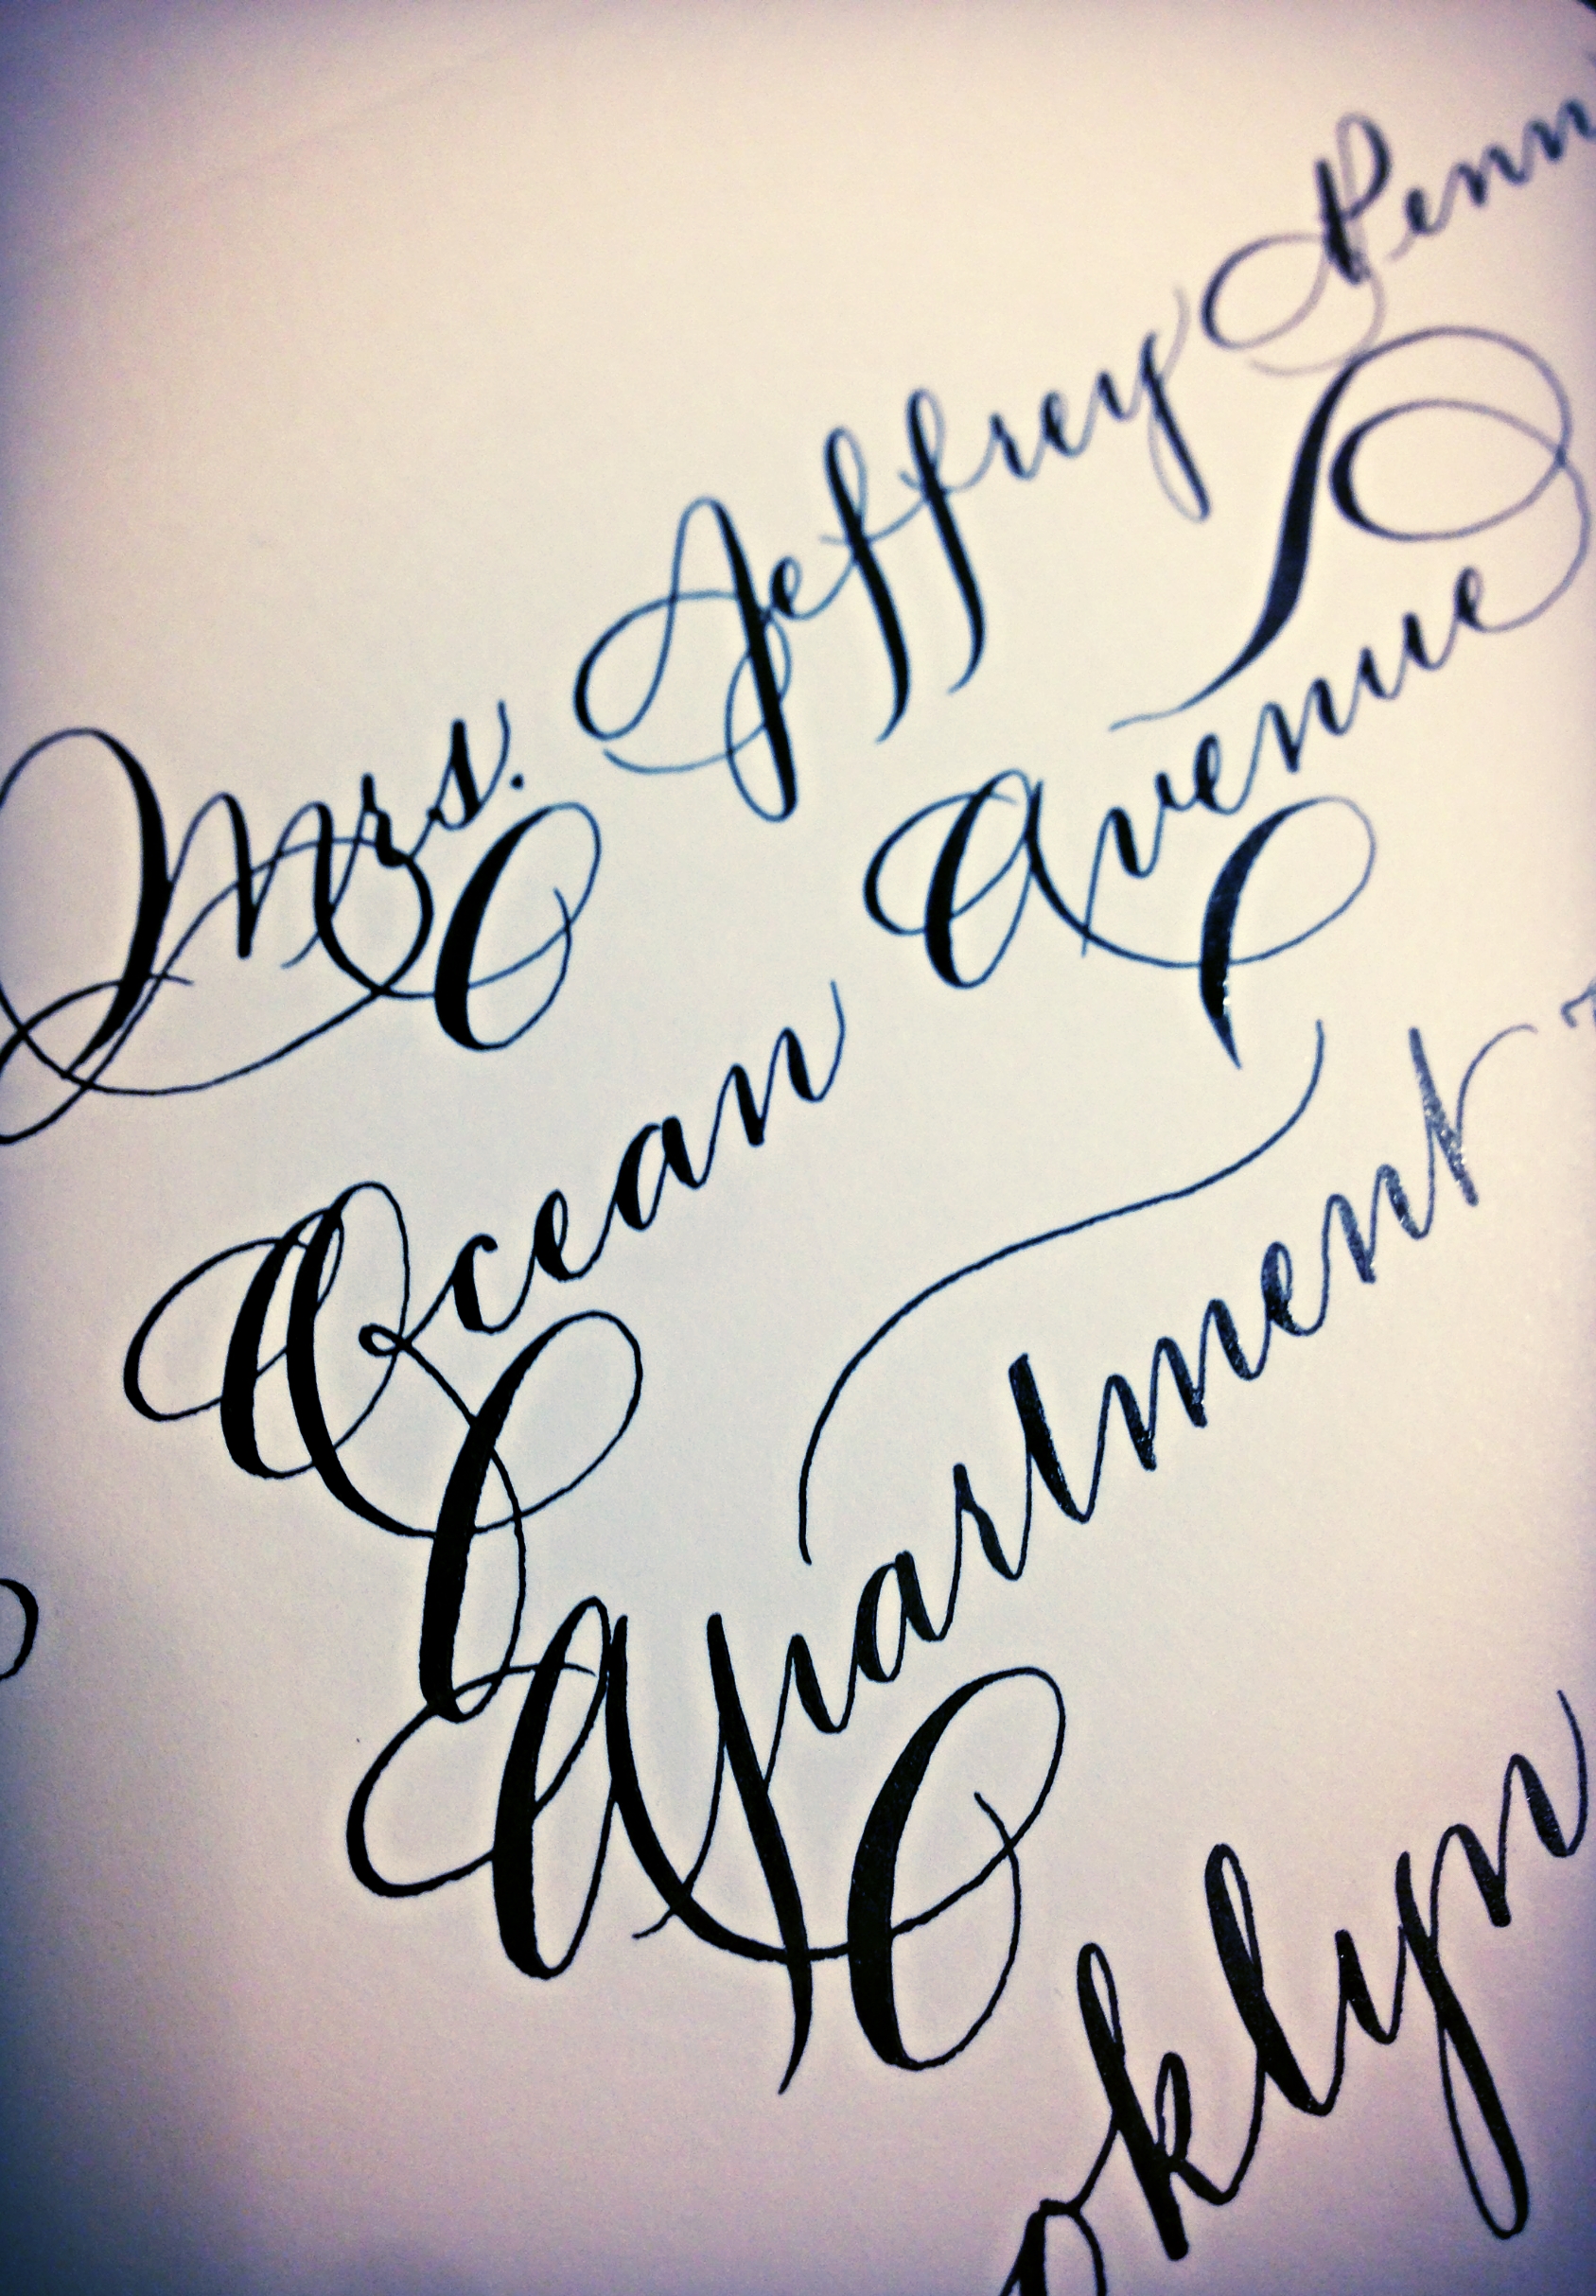 Mrs. Jeffrey Penn
Ocean Avenue
Apartment
oklyn